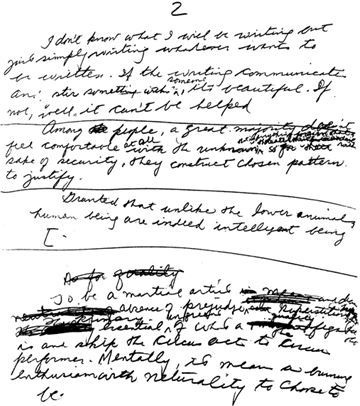 2
I don't know what I will be writing but
just simply writing whatever wants to
be written. If the writing communicate
and stir something within someone, its beautiful. If
not, well, it can't be helped
Among people, a great majority don't
feel comfortable at all with the unknown so for their
sake of security, they construct chosen pattern
to justify.
Granted that unlike the lower animals,
human being are indeed intelligent being
[.
As for quality
To be a martial artist mean and
absence of prejudice, superstition,
essential, of what a fighter
is and skip the circus act to circus
performer. Mentally, it mean a burning
enthusiasm with neutrality to choose to
be.